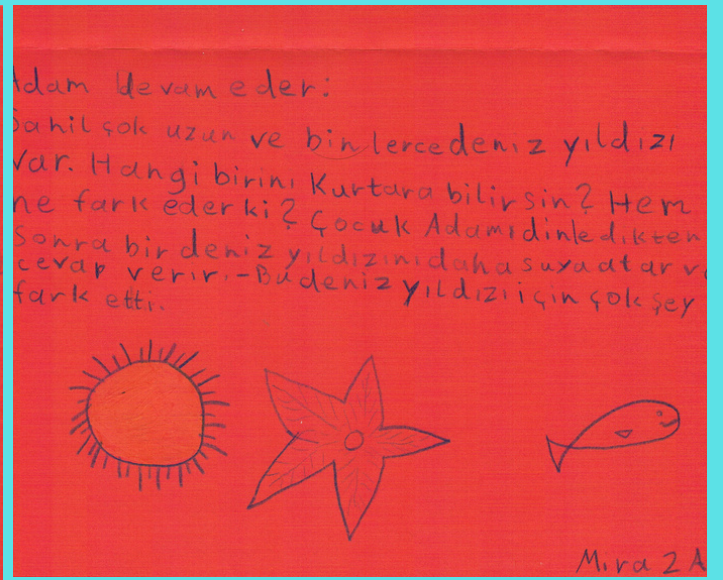 Adam devam eder:
Sahil çok uzun ve binlerce deniz yıldızı
var. Hangi birini Kurtarabilirsin? Hem
ne fark eder ki? Çocuk Adamı dinledikten
sonra bir deniz yıldızını daha suya atar ve
cevap verir. -Bu deniz yıldızı için çok şey
fark etti.
Mira 2 A